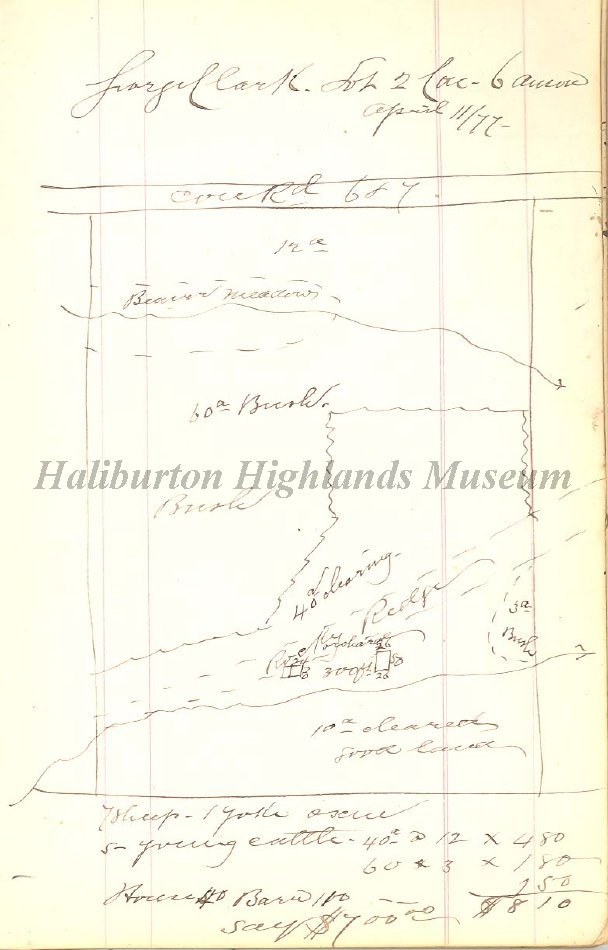 George Clark. Lot 2 Con- 6 anson
april 11/77-
Conc Rd 6 & 7.
12 a
Beaver meadows
60 a Bush.
Haliburton Highlands Museum
Bush
40 a clearing
Rocky Redge
3 a
Bush
orchard
26
24
18
300 ft
58
26
10 a cleared
good land
7 sheep - 1 yoke oxen
5- young cattle - 40 a @ 12 x 480
60 x 3 x 180
150
House 40 Barn 110
$ 810
say $700 00